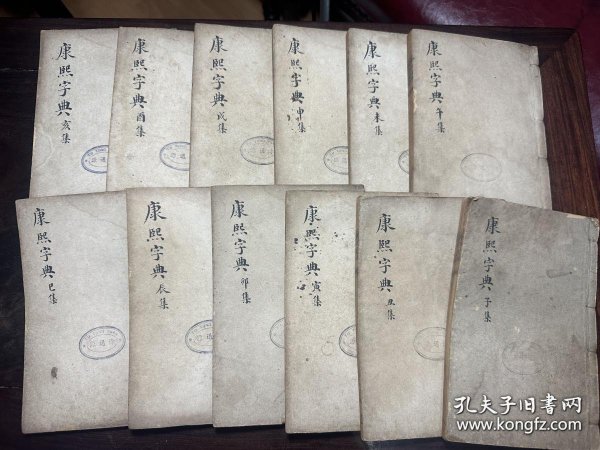 康熙字典 亥集
康熙字典 酉集
康熙字典 戌集
康熙字典 申集
康熙字典 未集
康熙字典 午集
康熙字典 巳集
康熙字典 辰集
康熙字典 卯集
康熙字典 寅集
康熙字典 丑集
康熙字典 子集
孔夫子旧书网
www.kongfz.com